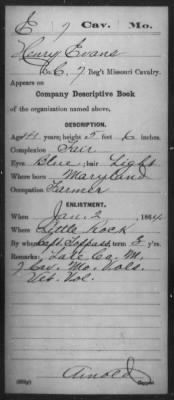 E 7 Cav. Mo.
Henry Evans
Co. C, 7 Reg't Missouri Cavalry.
Appears on
Company Descriptive Book
of the organization named above.
DESCRIPTION.
Age 44 years; height 5 feet 6 inches.
Complexion Fair
Eyes Blue; hair Light
Where born Maryland
Occupation Farmer
ENLISTMENT.
When Jan. 2, 1864.
Where Little Rock
By whom Capt. term 3 y'rs.
Remarks: Late Co. M.
7 Cav. Mo. Vols.
Vet. Vol.
Arnold